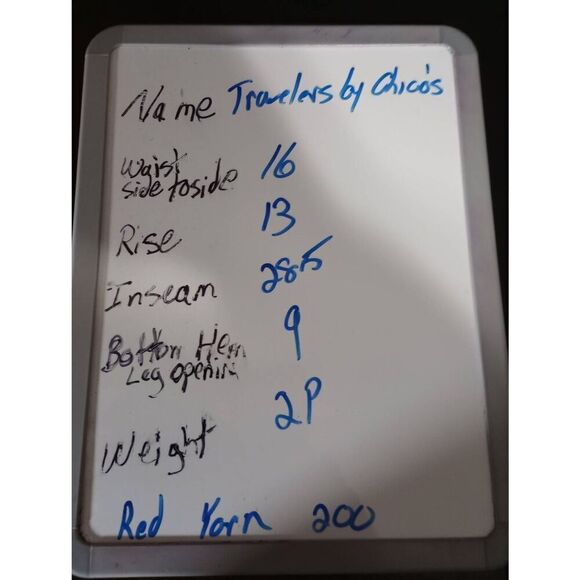 Name Travelers by Chico's
Waist
side to side 16
Rise 13
Inseam 28.5
Bottom Hem 9
Leg opening
Weight 2P
Red Yarn 200